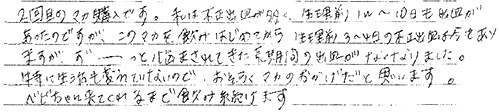 2回目のマカ購入です。私は不正出血が多く、生理前1w〜10日も出血が
あったのですが、このマカを飲みはじめてから 生理前3〜4日の不正出血は今もあり
ますが、ず――っと悩まされてきた長期間の出血がなくなりました。
特に生活も変わっていないので、おそらくマカのおかげだと思います。
ベビちゃん来てくれるまで飲み続けます